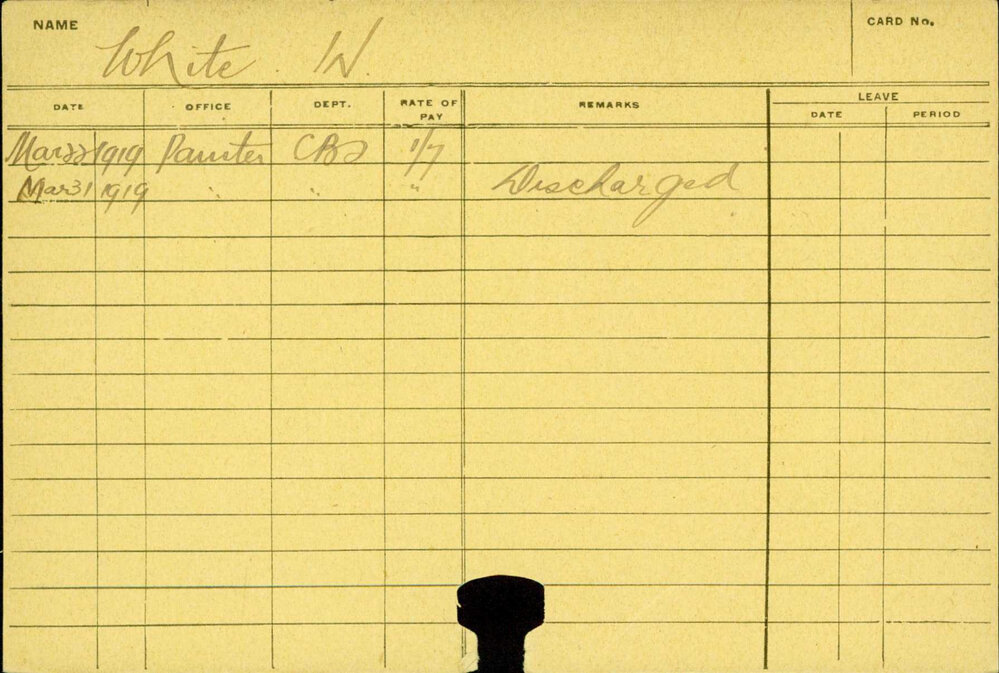 NAME White W. CARD No.
DATE OFFICE DEPT. RATE OF PAY REMARKS LEAVE
DATE PERIOD
Mar 22 1919 Painter 1/7
Mar 31 1919 " " " Discharged